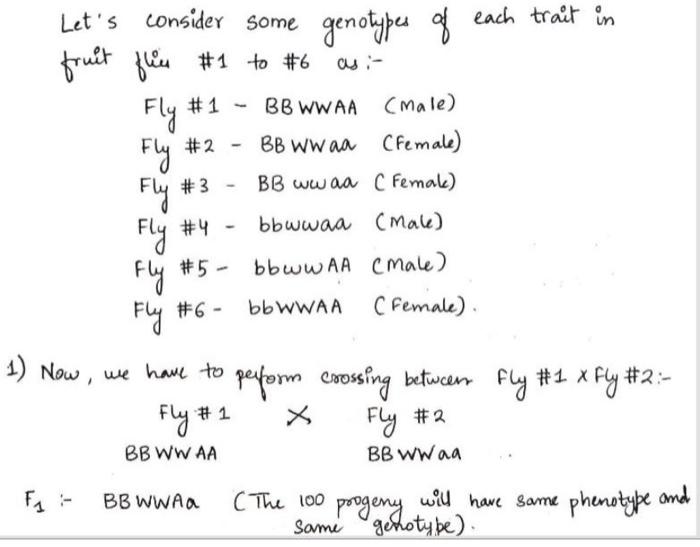 Let's consider some genotypes of each trait in
fruit flies #1 to #6 as :-
Fly #1 - BBWWAA (Male)
Fly #2 - BBWWaa (Female)
Fly #3 - BBwwaa (Female)
Fly #4 - bbwwaa (Male)
Fly #5 - bbwwAA (male)
Fly #6 - bbWWAA (Female).
1) Now, we have to perform crossing between Fly #1 x Fly #2:-
Fly #1 X Fly #2
BBWWAA BBWWaa
F1 :- BBWWAa (The 100 progeny will have same phenotype and
same genotype).